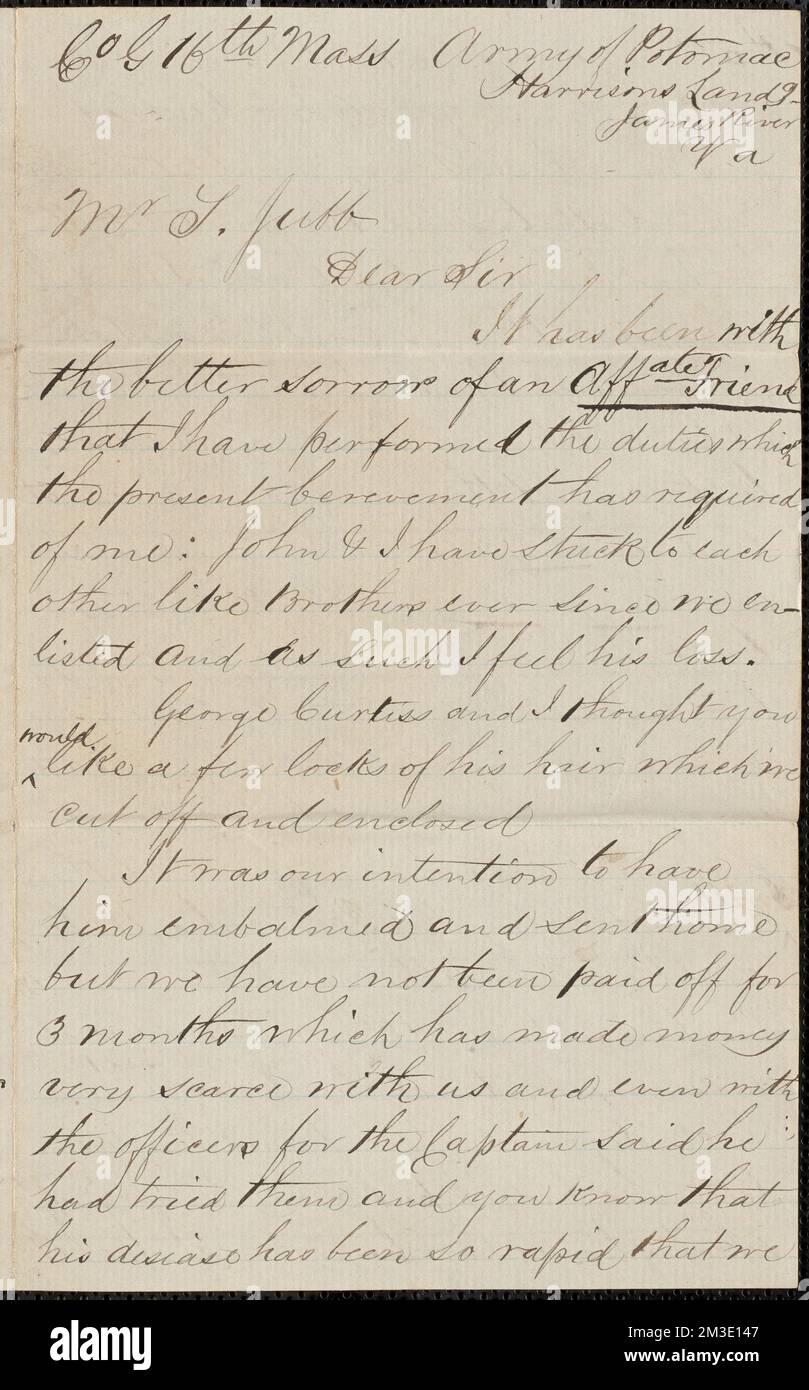 Co G 16th Mass Army of Potomac
Harrisons Landg
James River
Va
Mr S. Jubb
Dear Sir
It has been with
the better sorrow of an Affate Friend
that I have performed the duties which
the present berevement has required
of me: John & I have stuck to each
other like Brothers ever since we en-
listed and as such I feel his loss.
George Curtiss and I thought you
would
^ like a few locks of his hair which we
cut off and enclosed
It was our intention to have
him embalmed and sent home
but we have not been paid off for
3 months which has made money
very scarce with us and even with
the officers for the Captain said he
had tried them and you know that
his desiase has been so rapid that we
alamy
Image ID: 2M3E147
www.alamy.com